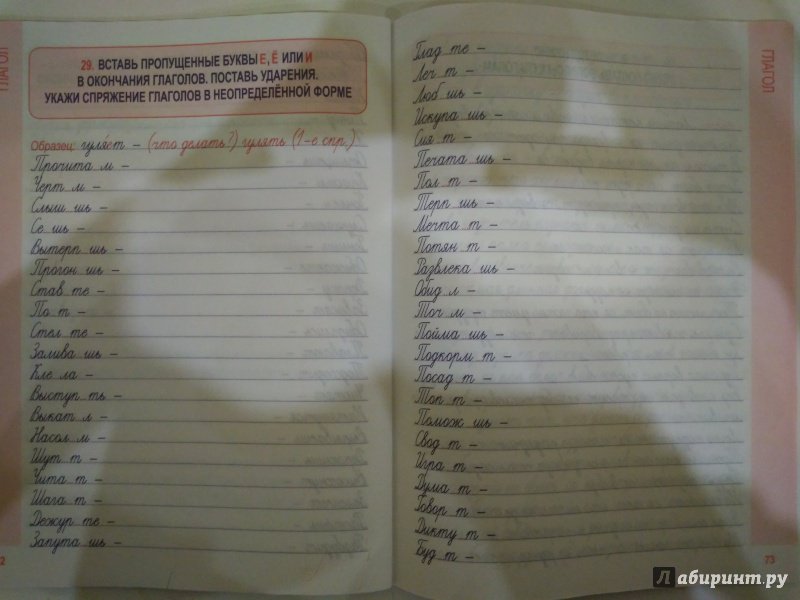 ГЛАГОЛ
29. ВСТАВЬ ПРОПУЩЕННЫЕ БУКВЫ Е, Ё ИЛИ И
В ОКОНЧАНИЯ ГЛАГОЛОВ. ПОСТАВЬ УДАРЕНИЯ.
УКАЖИ СПРЯЖЕНИЕ ГЛАГОЛОВ В НЕОПРЕДЕЛЁННОЙ ФОРМЕ
Образец: гуля́ет – (что делать?) гулять (1-е спр.)
Прочита м –
Черт м –
Слыш шь –
Се шь –
Вытерп шь –
Прогон шь –
Став те –
По т –
Стел те –
Залива шь –
Кле ла –
Выступ ть –
Выкат л –
Насол м –
Шут т –
Чита т –
Шага т –
Дежур те –
Запута шь –
2
ГЛАГОЛ
Глад те –
Леч т –
Люб шь –
Искупа шь –
Сия т –
Печата шь –
Пол т –
Терп шь –
Мечта т –
Потян т –
Развлека шь –
Обид л –
Точ м –
Пойма шь –
Подкорм т –
Посад т –
Топ т –
Помож шь –
Свод т –
Игра т –
Дума т –
Говор т –
Дикту т –
Буд т –
73
Лабиринт.ру